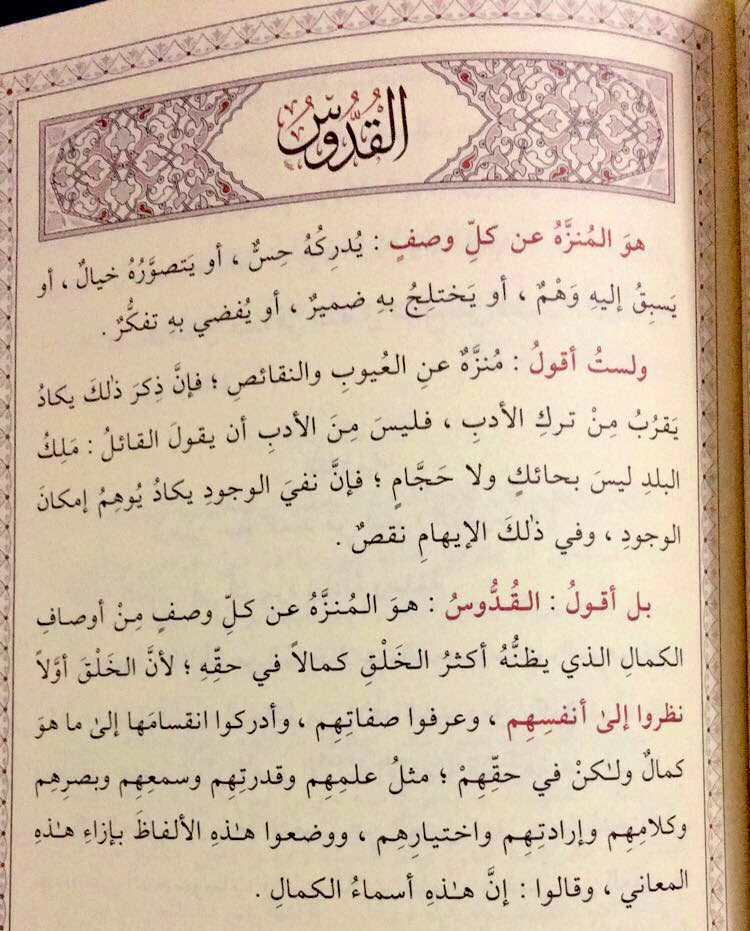 القُدُّوسُ
هوَ المُنزَّهُ عن كلِّ وصفٍ : يُدرِكُهُ حِسٌّ ، أو يَتصوَّرُهُ خيالٌ ، أو
يَسبِقُ إليهِ وَهْمٌ ، أو يَختلِجُ بهِ ضميرٌ ، أو يُفضي بهِ تفكُّرٌ .
ولستُ أقولُ : مُنزَّهٌ عنِ العُيوبِ والنقائصِ ؛ فإنَّ ذِكرَ ذٰلكَ يكادُ
يَقرُبُ مِنْ تركِ الأدبِ ، فليسَ مِنَ الأدبِ أن يقولَ القائلُ : مَلِكُ
البلدِ ليسَ بحائكٍ ولا حَجَّامٍ ؛ فإنَّ نفيَ الوجودِ يكادُ يُوهِمُ إمكانَ
الوجودِ ، وفي ذٰلكَ الإيهامِ نقصٌ .
بل أقولُ : القُدُّوسُ : هوَ المُنزَّهُ عن كلِّ وصفٍ مِنْ أوصافِ
الكمالِ الذي يظنُّهُ أكثرُ الخَلْقِ كمالاً في حقِّهِ ؛ لأنَّ الخَلْقَ أوَّلاً
نظروا إلىٰ أنفسِهِم ، وعرفوا صفاتِهِم ، وأدركوا انقسامَها إلىٰ ما هوَ
كمالٌ ولـٰكنْ في حقِّهِمْ ؛ مثلُ علمِهِم وقدرتِهِم وسمعِهِم وبصرِهِم
وكلامِهِم وإرادتِهِم واختيارِهِم ، ووضعوا هـٰذهِ الألفاظَ بإزاءِ هـٰذهِ
المعاني ، وقالوا : إنَّ هـٰذهِ أسماءُ الكمالِ .